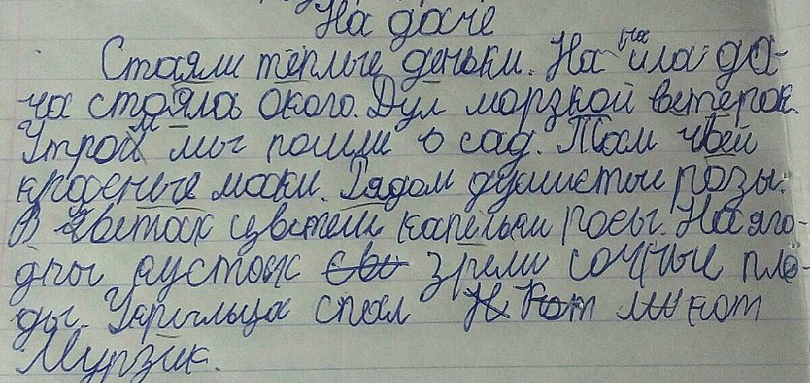 На даче
Стаяли тёплые деньки. На ила да-
ча стояла около. Дул морзкой ветерок.
Утром мы пошли в сад. Там
маки. Рядом душистыи розы.
В цветах капельки росы. На яго-
дны кустах зрели сочные пло-
ды. Укрыльца спал кот
Мурзик.